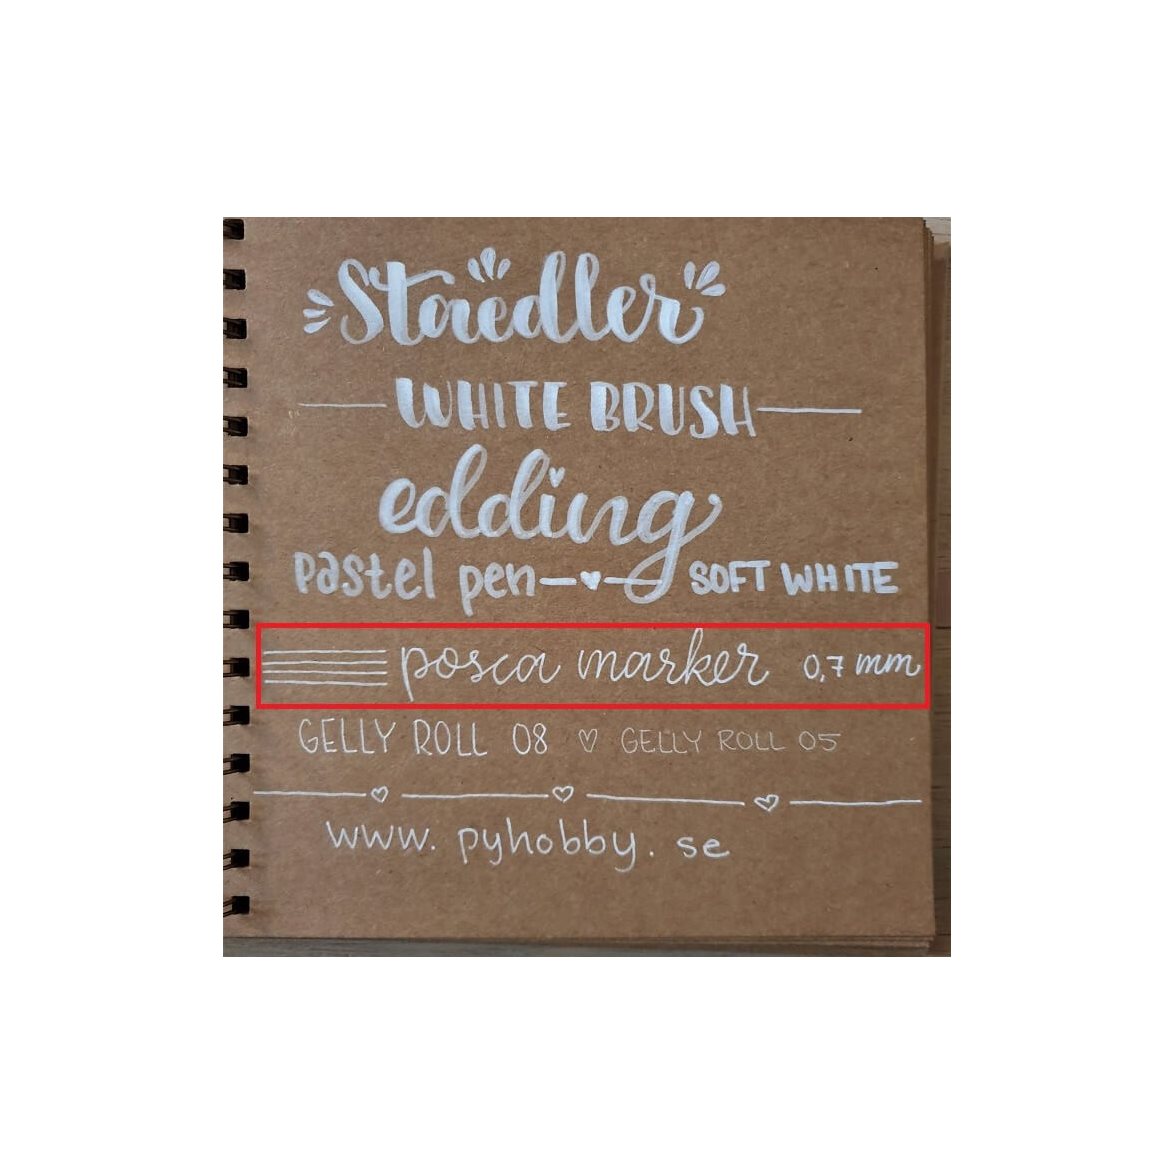 Staedler
WHITE BRUSH
edding
pastel pen SOFT WHITE
posca marker 0,7 mm
GELLY ROLL 08 ♡ GELLY ROLL 05
www.pyhobby.se